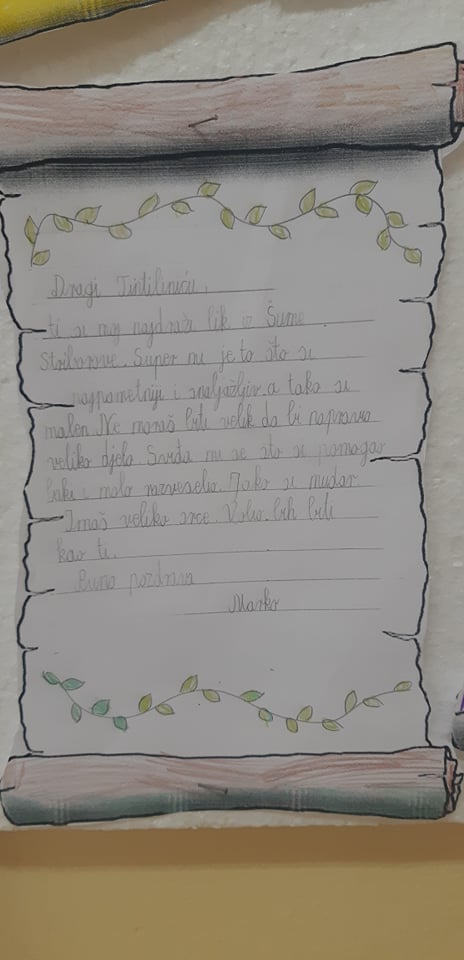 Dragi Tintiliniću,
ti si moj najdraži lik iz Šume
Striborove. Super mi je to što si
najpametniji i snalažljiv a tako si
malen. Ne moraš biti velik da bi napravio
veliko djelo. Sviđa mi se što si pomogao
baki i malo razveselio. Jako si mudar
Imaš veliko srce. Volio bih biti
kao ti.
Puno pozdrava
Marko